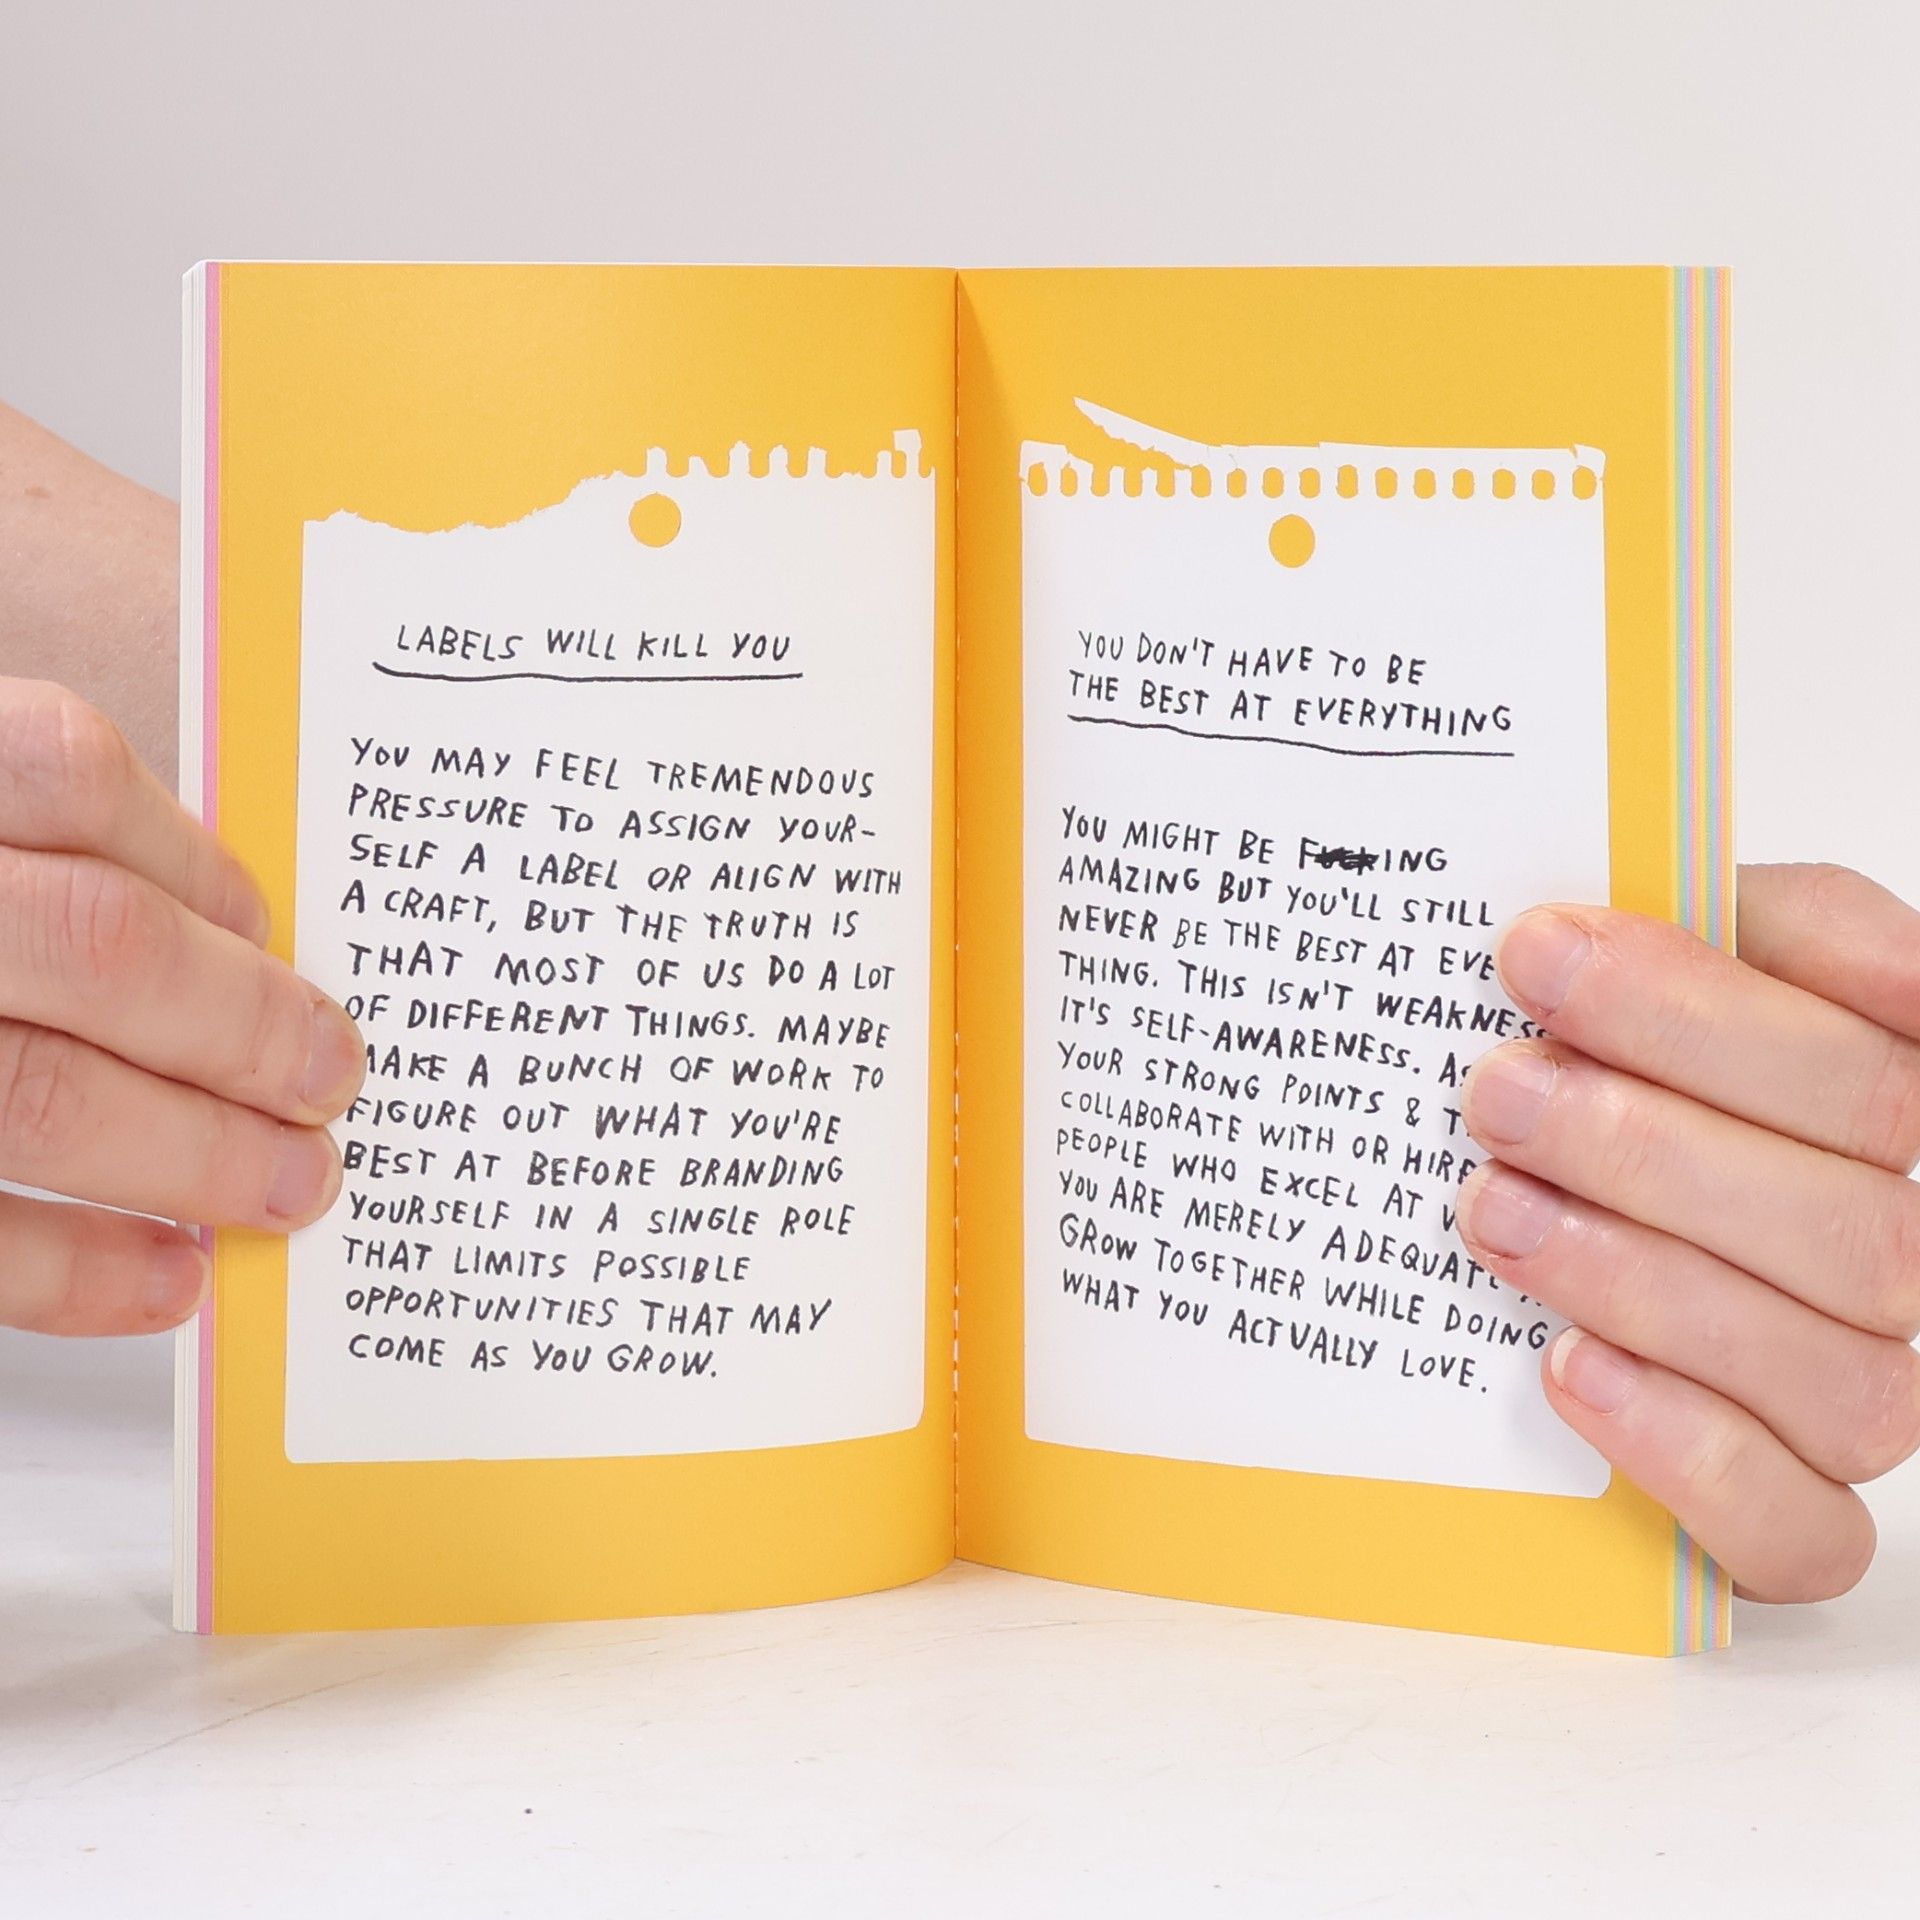 LABELS WILL KILL YOU
YOU MAY FEEL TREMENDOUS
PRESSURE TO ASSIGN YOUR-
SELF A LABEL OR ALIGN WITH
A CRAFT, BUT THE TRUTH IS
THAT MOST OF US DO A LOT
OF DIFFERENT THINGS. MAYBE
MAKE A BUNCH OF WORK TO
FIGURE OUT WHAT YOU'RE
BEST AT BEFORE BRANDING
YOURSELF IN A SINGLE ROLE
THAT LIMITS POSSIBLE
OPPORTUNITIES THAT MAY
COME AS YOU GROW.
YOU DON'T HAVE TO BE
THE BEST AT EVERYTHING
YOU MIGHT BE
AMAZING BUT YOU'LL STILL
NEVER BE THE BEST AT
THING. THIS ISN'T WEAKNESS
IT'S SELF-AWARENESS.
YOUR STRONG POINTS &
COLLABORATE WITH OR HIRE
PEOPLE WHO EXCEL AT
YOU ARE MERELY ADEQUATE
GROW TOGETHER WHILE DOING
WHAT YOU ACTUALLY LOVE.